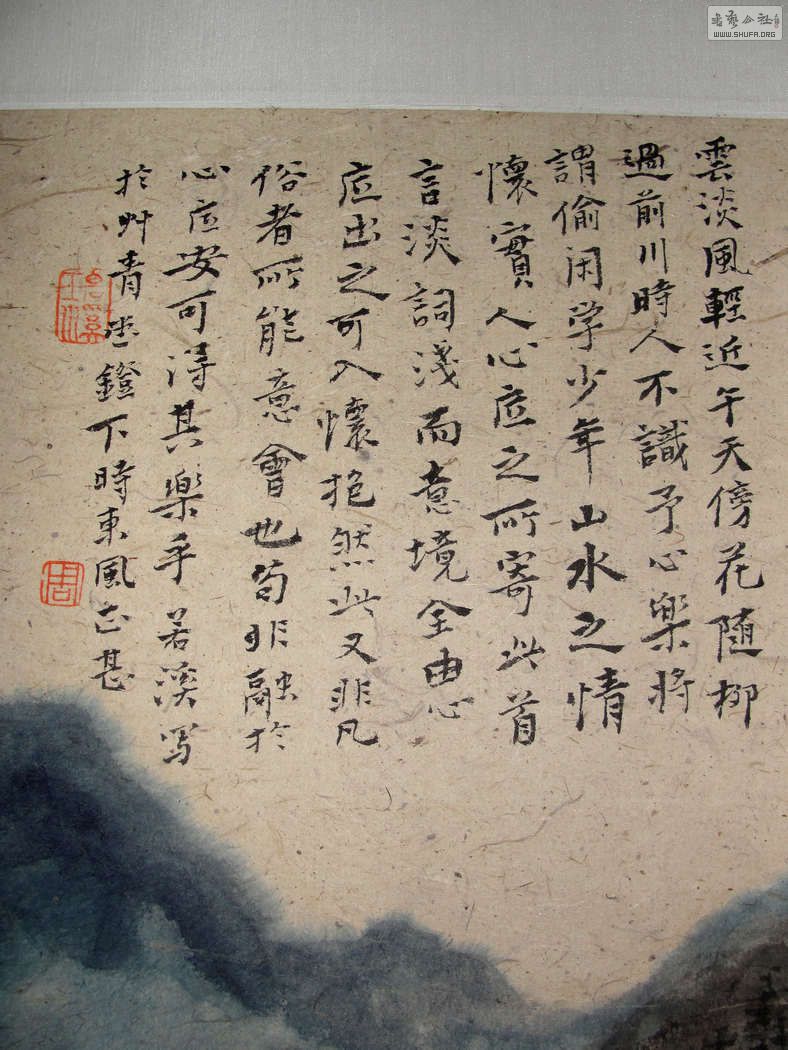 雲淡風輕近午天傍花隨柳
過前川時人不識予心樂將
謂偷闲学少年山水之情
懷實人心底之所寄此首
言淡詞淺而意境全由心
底出之可入懷抱然此又非凡
俗者所能意會也苟非融於
心底安可得其樂乎若溪写
於艸青堂鐙下時東風正甚
周
书艺公社
WWW.SHUFA.ORG